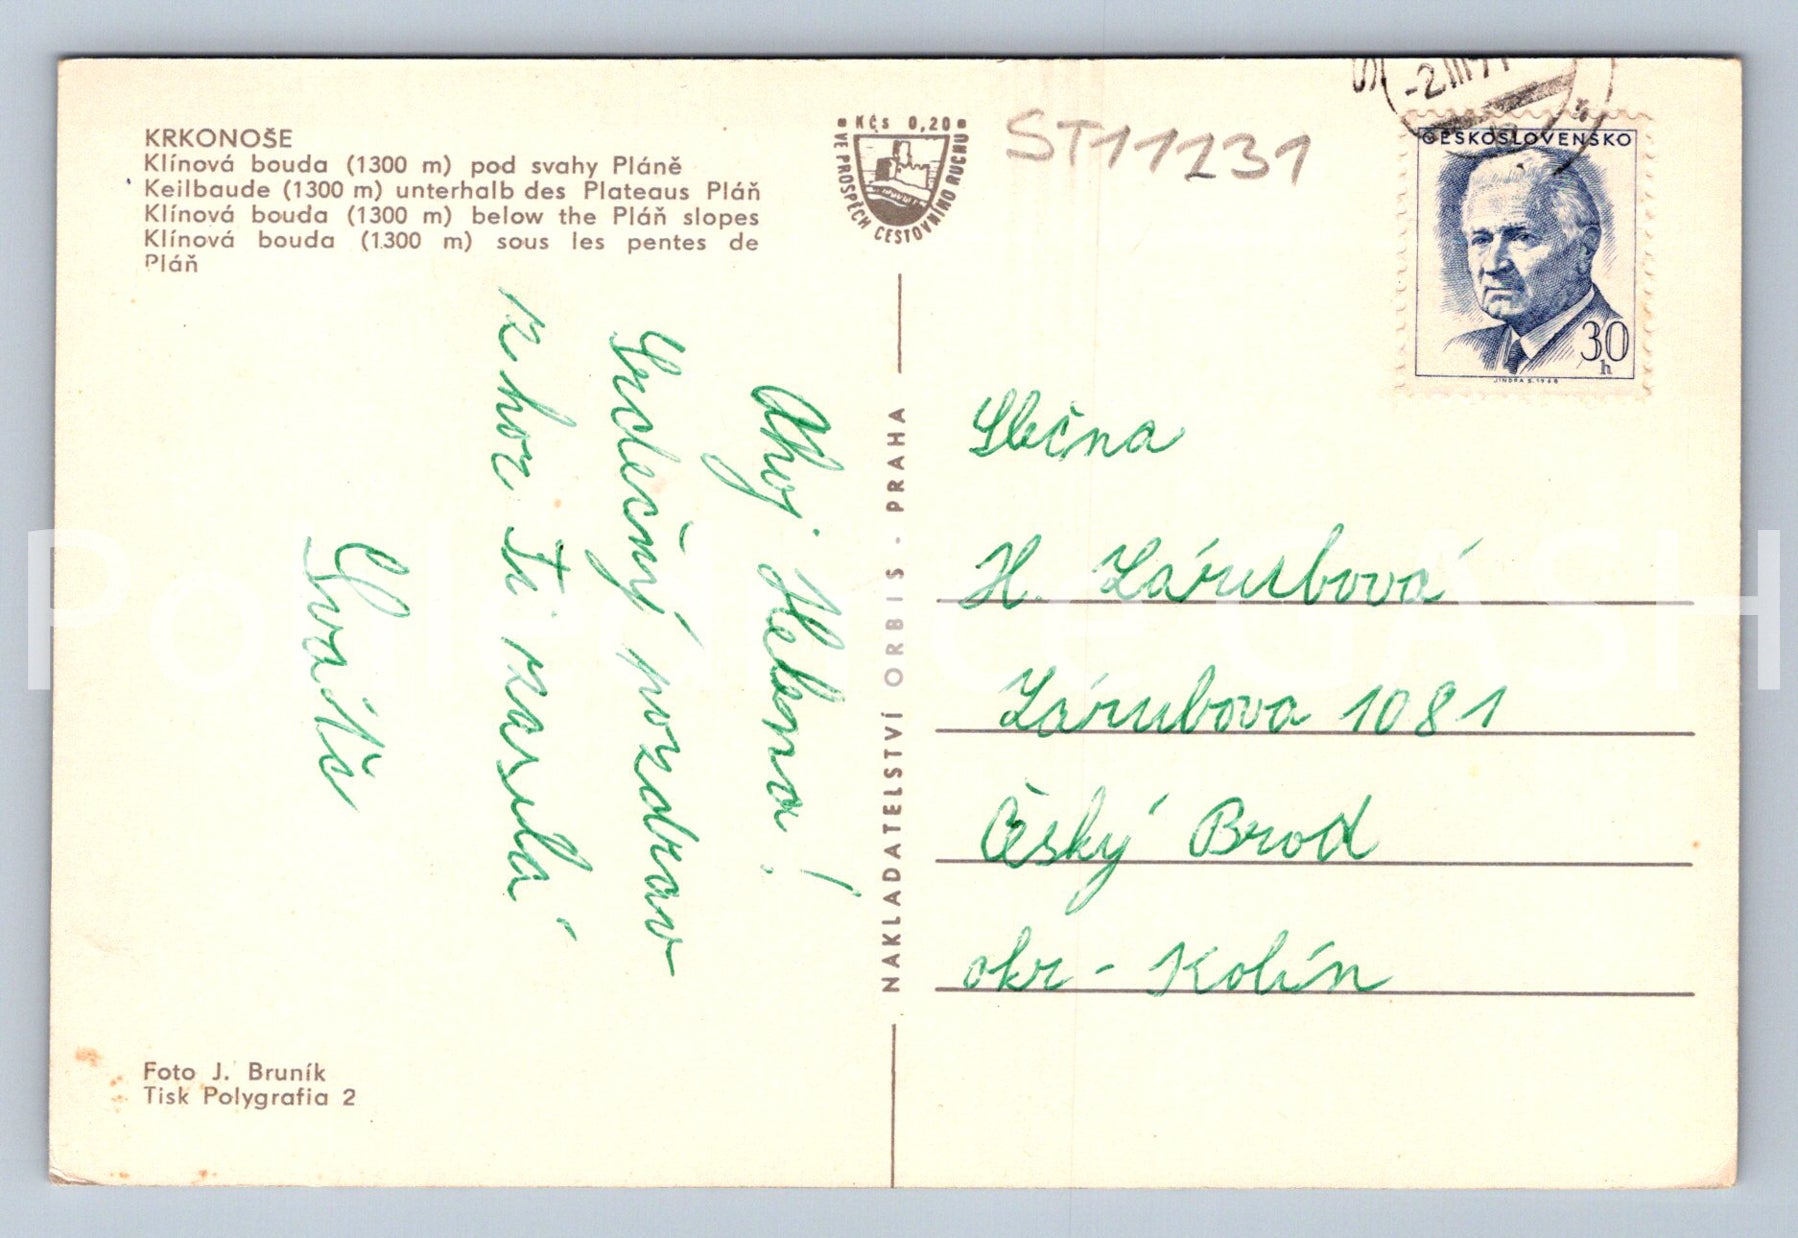 KRKONOŠE
Klínová bouda (1300 m) pod svahy Pláně
Keilbaude (1300 m) unterhalb des Plateaus Pláň
Klínová bouda (1300 m) below the Pláň slopes
Klínová bouda (1300 m) sous les pentes de
Pláň
Kčs 0,20
VE PROSPĚCH CESTOVNÍHO RUCHU
ST11231
-2.III.71
ČESKOSLOVENSKO
30
h
JINDRA S. 1968
Ahoj Heleno!
Srdečný pozdrav
z hor Ti zasílá
NAKLADATELSTVÍ ORBIS - PRAHA
Slečna
H. Zárubová
Zárubova 1081
Český Brod
okr - Kolín
Foto J. Bruník
Tisk Polygrafia 2